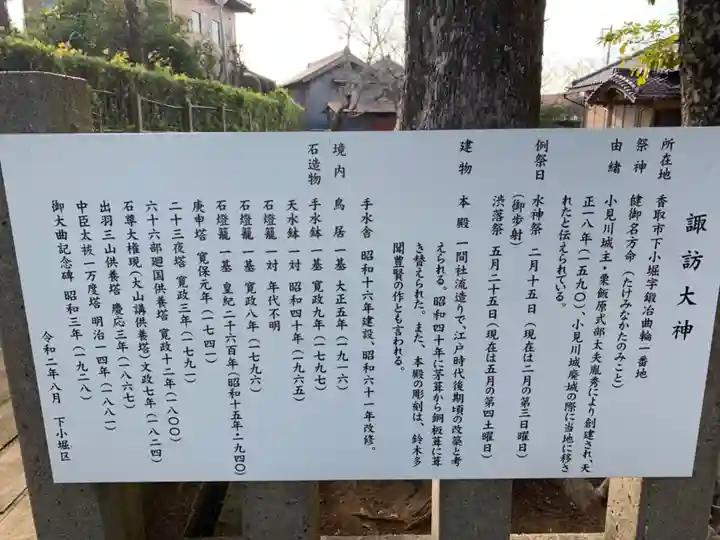 諏訪大神
所在地 香取市下小堀字鍛冶曲輪一番地
祭神 健御名方命(たけみなかたのみこと)
由緒 小見川城主・粟飯原式部太夫胤秀により創建され、天
正一八年(一五九〇)、小見川城廃城の際に当地に移さ
れたと伝えられている。
例祭日 水神祭 二月十五日(現在は二月の第三日曜日)
(御歩射)
渋落祭 五月二十五日(現在は五月の第四土曜日)
建物 本殿 一間社流造りで、江戸時代後期頃の改築と考
えられる。昭和四十年に茅葺から銅板葺に葺
き替えられた。また、本殿の彫刻は、鈴木多
聞豊賢の作とも言われる。
手水舎 昭和十六年建設、昭和六十一年改修。
境内 鳥居 一基 大正五年(一九一六)
石造物 手水鉢 一基 寛政九年(一七九七)
天水鉢 一対 昭和四十年(一九六五)
石燈籠 一対 年代不明
石燈籠 一基 寛政八年(一七九六)
石燈籠 一基 皇紀二千六百年(昭和十五年・一九四〇)
庚申塔 寛保元年(一七四一)
二十三夜塔 寛政三年(一七九一)
六十六部廻国供養塔 寛政十二年(一八〇〇)
石尊大権現(大山講供養塔)文政七年(一八二四)
出羽三山供養塔 慶応三年(一八六七)
中臣太祓一万度塔 明治一四年(一八八一)
御大曲記念碑 昭和三年(一九二八)
令和二年八月 下小堀区